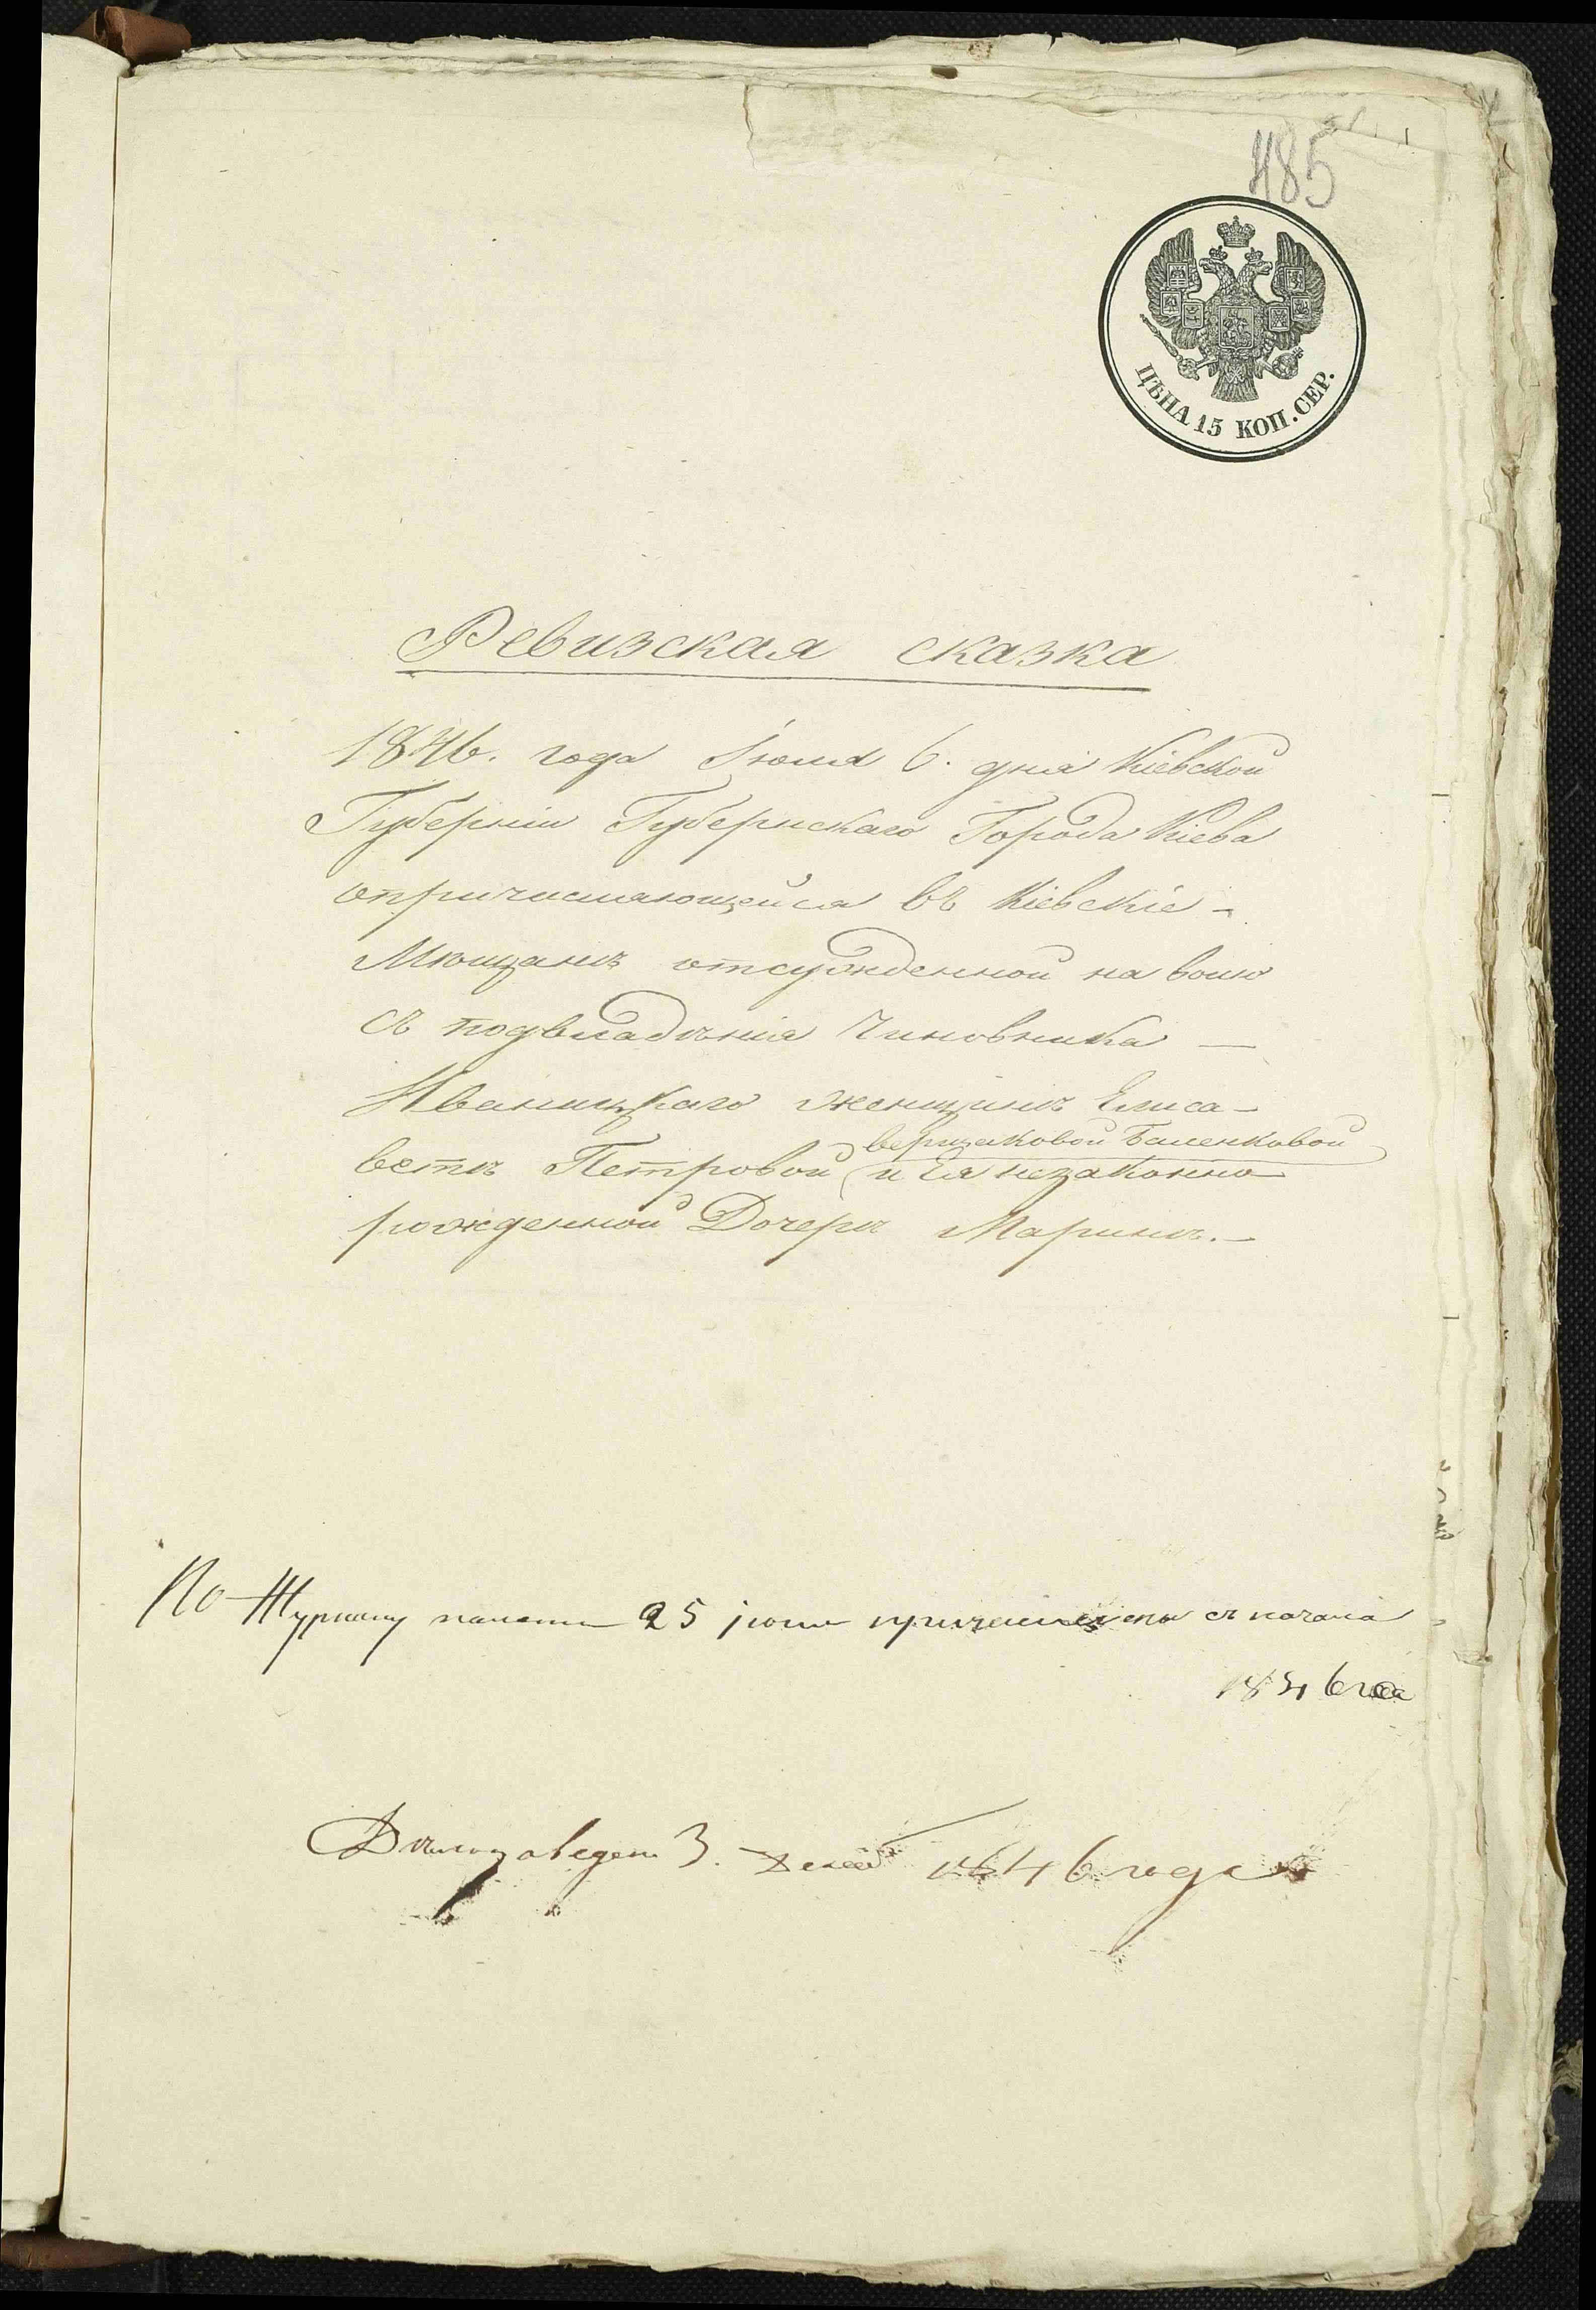 485
ЦѢНА 15 КОП. СЕР.
Ревизская сказка
1846. года Іюля 6. дня Кіевской
Губерніи Губернскаго Города Кіева
опричисляющейся въ Кіевскіе -
Мѣщанъ отсужденной на волю
съ подвладѣнія Чиновника —
Иваницкаго женщинѣ Елиса-
ветѣ Петровой и Ея незаконно
рожденной Дочери Маринѣ. —
По Журналу палаты 25 іюня причислены съ начала
1846 го
1846 года